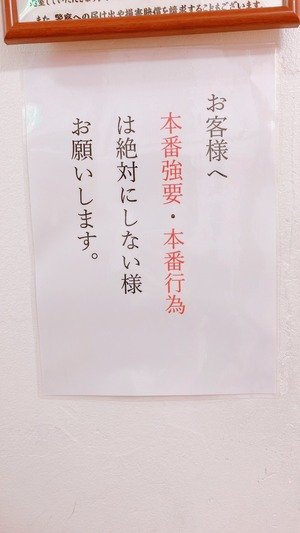 また、警察への届け出や損害賠償を請求することもございます。
お客様へ
本番強要・本番行為
は絶対にしない様
お願いします。